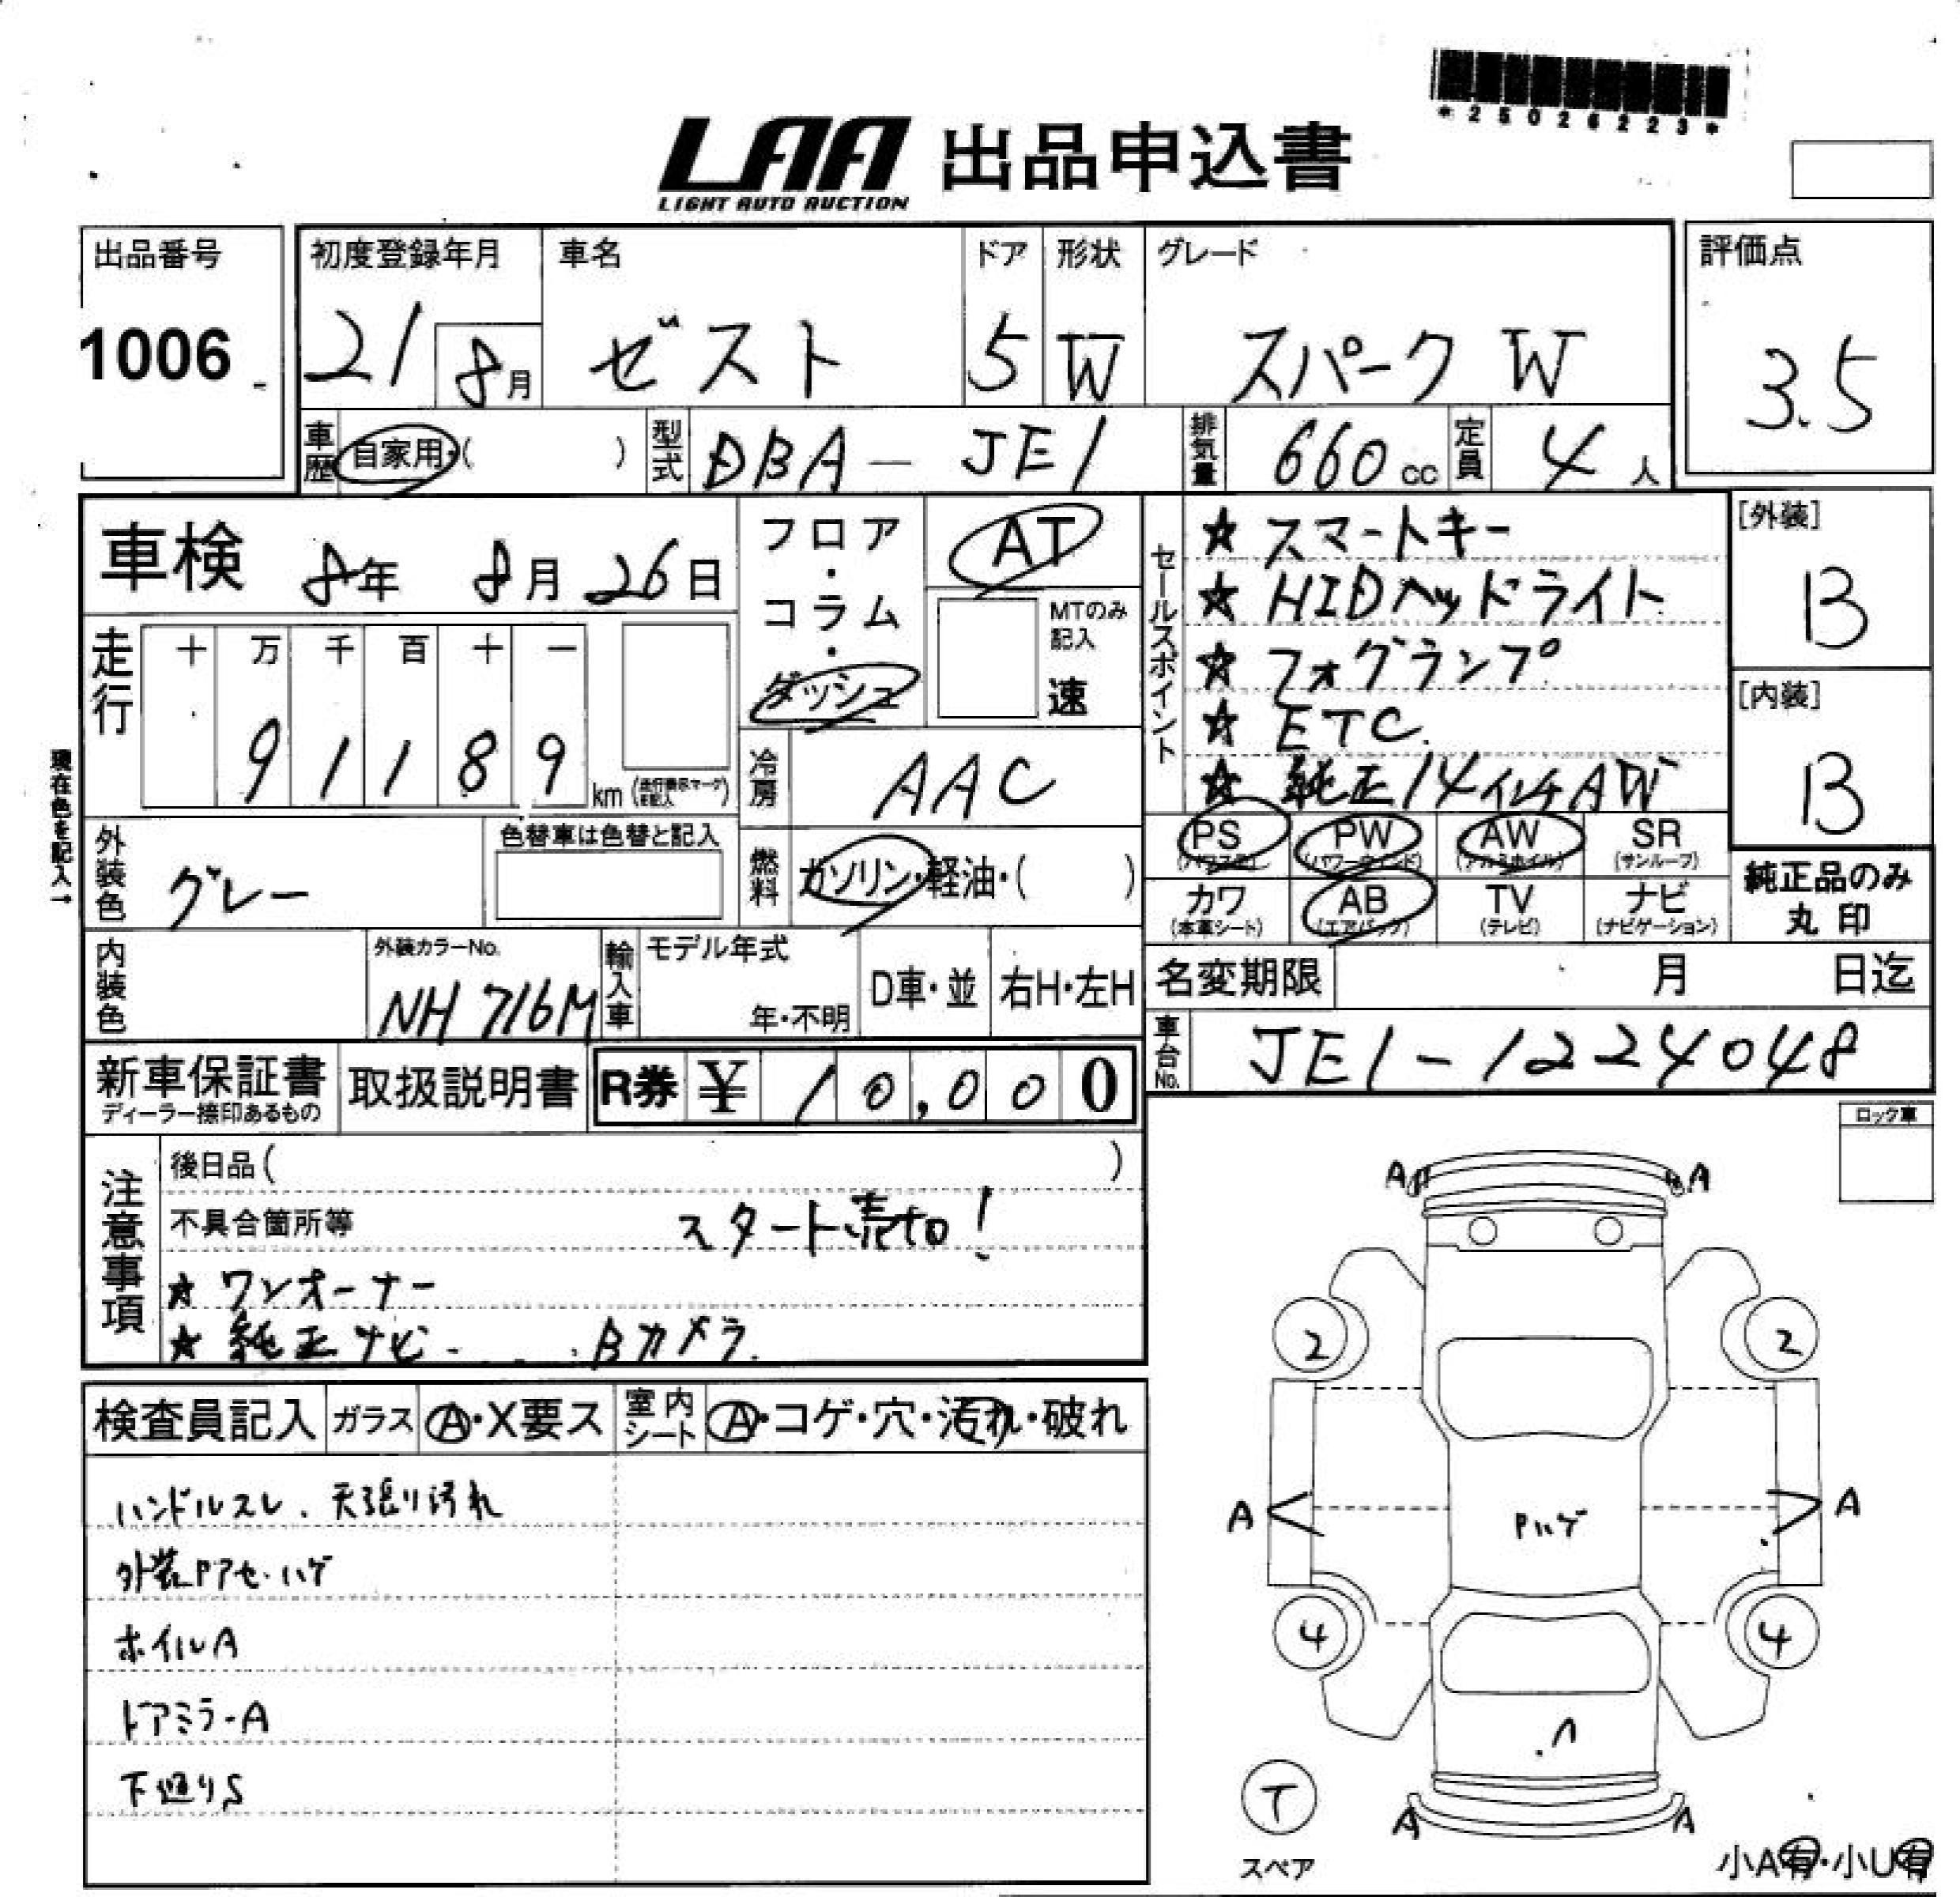 *25026223*
LAA 出品申込書
LIGHT AUTO AUCTION
出品番号
1006
初度登録年月
21 8月
車名
ゼスト
ドア
5
形状
W
グレード
スパーク W
評価点
3.5
車歴 自家用・( )
型式 DBA-JE1
排気量 660cc
定員 4人
車検 8年 8月26日
走行
十 万 千 百 十 一
9 1 1 8 9 km
現在色を記入→
フロア・コラム・ダッシュ
AT
MTのみ記入
速
セールスポイント
☆ スマートキー
☆ HIDヘッドライト
☆ フォグランプ
☆ ETC.
☆ 純正14インチAW
[外装]
B
[内装]
B
冷房 AAC
燃料 ガソリン・軽油・( )
外装色 グレー
色替車は色替と記入
PS PW AW SR
(パワステ) (パワーウインド) (アルミホイル) (サンルーフ)
カワ AB TV ナビ
(本革シート) (エアバック) (テレビ) (ナビゲーション)
純正品のみ
丸印
内装色
外装カラーNo.
NH716M
輸入車
モデル年式
年・不明
D車・並
右H・左H
名変期限 月 日迄
車台No. JE1-1224048
新車保証書
ディーラー捺印あるもの
取扱説明書
R券 ¥10,000
ロック車
注意事項
後日品( )
不具合箇所等 スタート売切!
☆ ワンオーナー
☆ 純正ナビ Bカメラ
検査員記入
ガラス A・X要ス
室内シート A・コゲ・穴・汚れ・破れ
ハンドルスレ、天張り汚れ
外装Pアセ・ハゲ
ホイルA
ドアミラーA
下廻りS
A A
2 2
A A
Pハゲ
4 4
T
スペア
A A
小A有・小U有